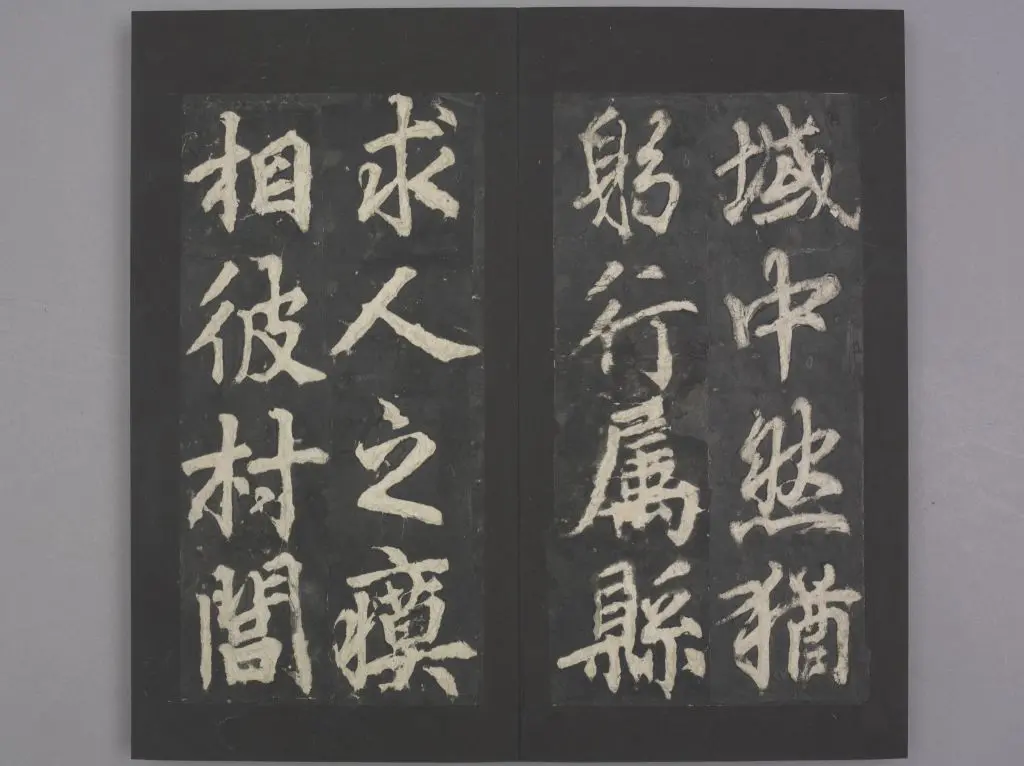 域中然猶
躬行属縣
求人之瘼
相彼村閭